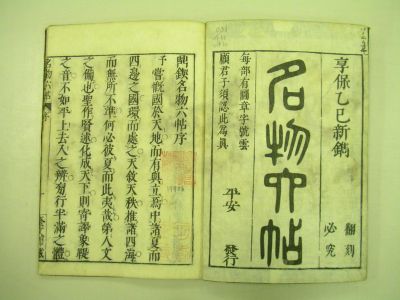 享保乙巳新鐫
名物六帖
翻刻
必究
每部有圖章字號雲
顧君子須認此爲眞
平安
發行
鐫名物六帖序
予嘗慨國於天地而有與立焉中諸夏而
四邊之國環而處之天敘天秩推諸四海
而無所不準何必彼夏而此夷哉第人文
之備也聖作賢述化成天下則寄譯象鞮
之音不如平上去入之辨匆行半滿之體
名物六帖
序